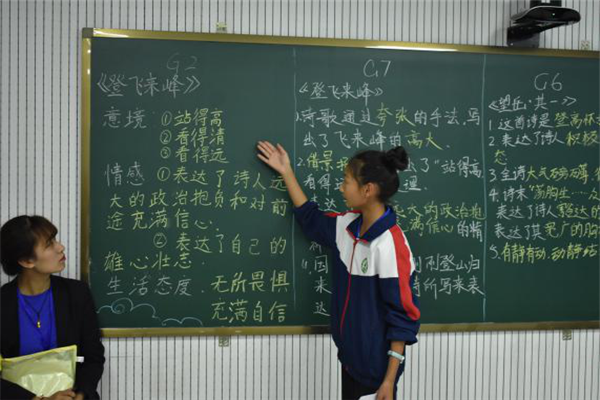 G2
《登飞来峰》
意境 ①站得高
②看得清
③看得远
情感 ①表达了诗人远
大的政治抱负和对前
途充满信心.
②表达了自己的
雄心壮志.
生活态度. 无所畏惧
充满自信
G7
《登飞来峰》
1.诗歌通过夸张的手法,写
出了飞来峰的高大.
2.借景 了"站得高
看得 理.
大的政治抱
充满信心的精
"因 利用登山归
达 诗所写来来
G6
《望岳·其一》
1.这首诗是 登高
2.表达了诗人积极
3.全诗大气
4.诗末"荡胸生
表达了诗人豁达的
表达了其宽广的胸
5.有静有动,动静结